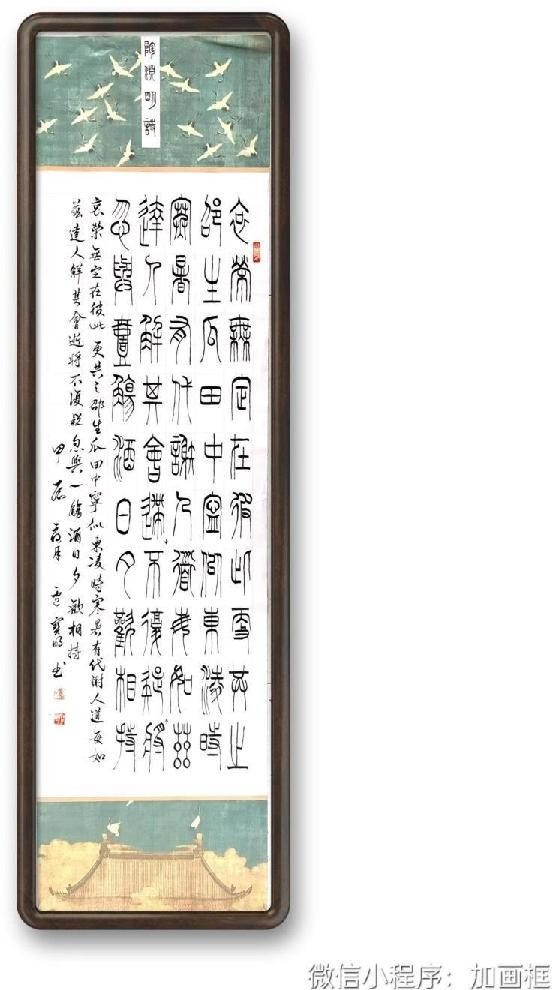 陶淵明詩
衰榮無定在彼此更共之
邵生瓜田中寧似東陵時
寒暑有代謝人道每如茲
達人解其會逝不復疑將
忽與壹觴酒日夕歡相持
衰榮無定在彼此更共之邵生瓜田中寧似東陵時寒暑有代謝人道每如
茲達人解其會逝將不復疑忽與一觴酒日夕歡相持
甲辰 月 寶明书
微信小程序：加画框